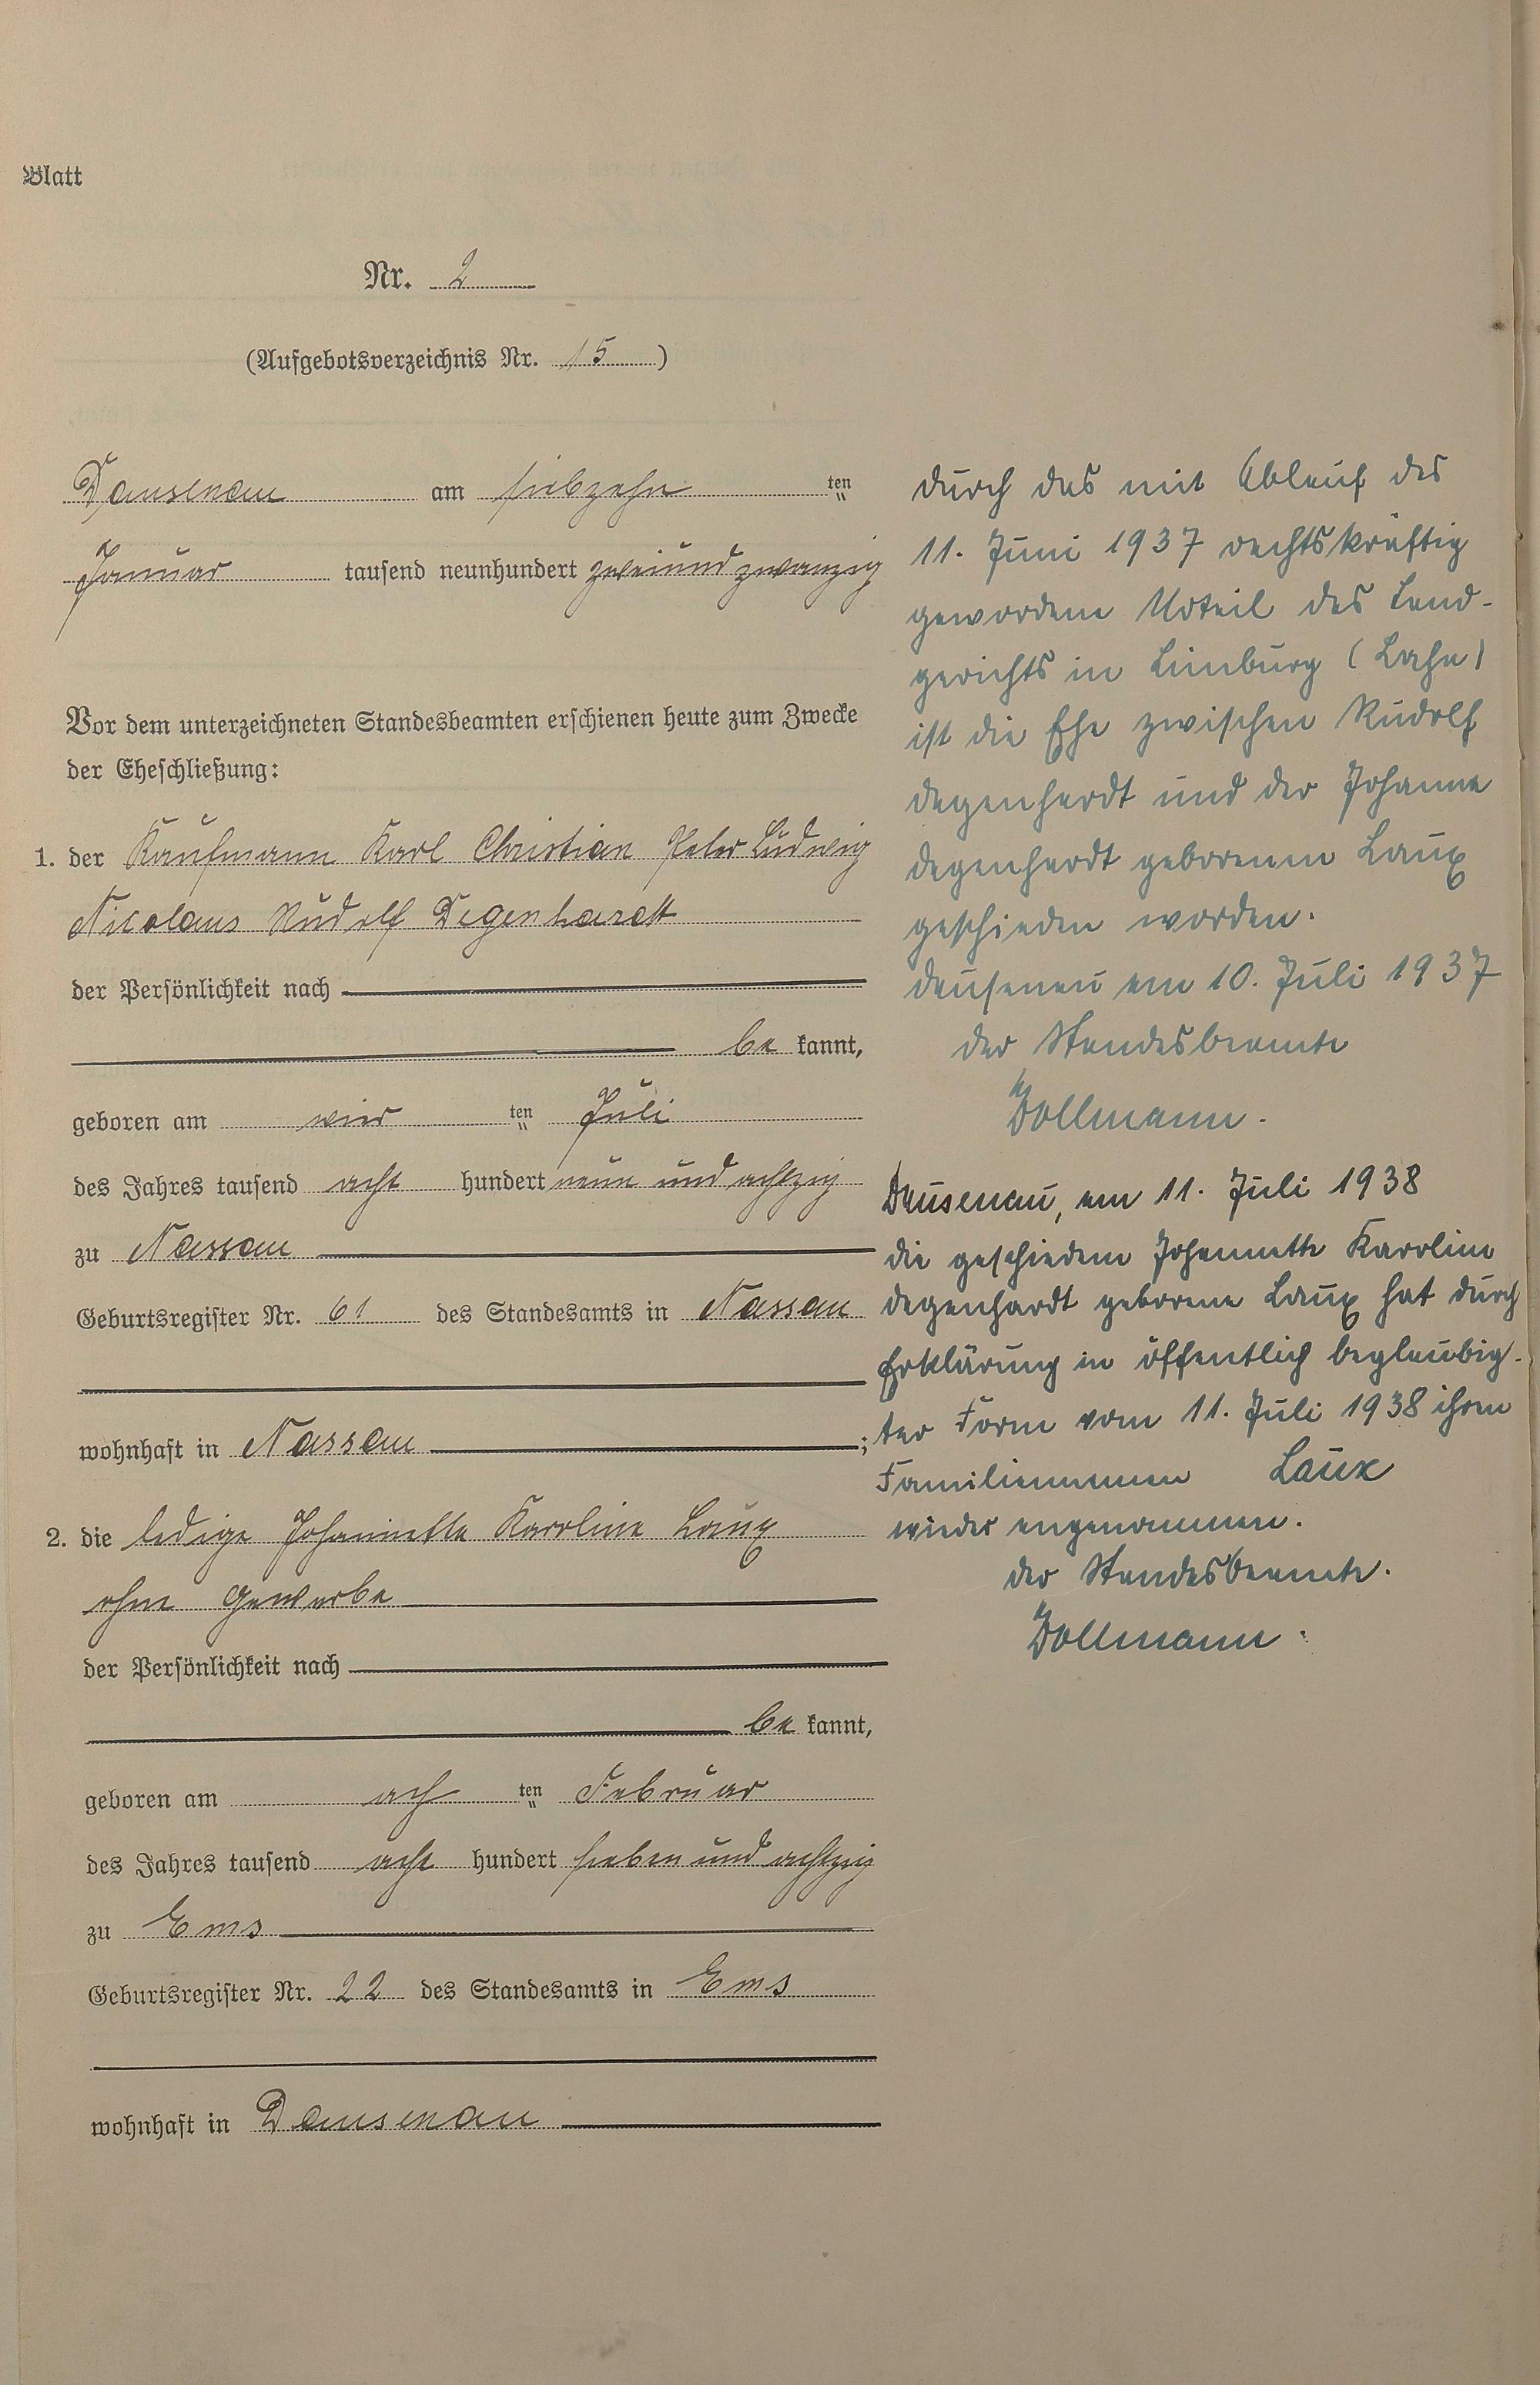 Blatt
Nr. 2
(Aufgebotsverzeichnis Nr. 15)
Dausenau am siebzehn ten
Januar tausend neunhundert zweiund zwanzig
Vor dem unterzeichneten Standesbeamten erschienen heute zum Zwecke
der Eheschließung:
1. der Kaufmann Karl Christian Peter Ludwig
Nicolaus Rudolf Degenhardt
der Persönlichkeit nach
be kannt,
geboren am vier ten Juli
des Jahres tausend acht hundert neun und achtzig
zu Nassau
Geburtsregister Nr. 61 des Standesamts in Nassau
wohnhaft in Nassau ;
2. die ledige Johannette Karoline Laux
ohne Gewerbe
der Persönlichkeit nach
be kannt,
geboren am ach ten Februar
des Jahres tausend acht hundert sieben und achtzig
zu Ems
Geburtsregister Nr. 22 des Standesamts in Ems
wohnhaft in Dausenau
Durch das mit Ablauf des
11. Juni 1937 rechtskräftig
gewordene Urteil des Land-
gerichts in Limburg (Lahn)
ist die Ehe zwischen Rudolf
Degenhardt und der Johanna
Degenhardt geborenen Laux
geschieden worden.
Dausenau am 10. Juli 1937
Der Standesbeamte
Dollmann.
Dausenau, am 11. Juli 1938
Die geschiedene Johannette Karoline
Degenhardt geborene Laux hat durch
Erklärung in öffentlich beglaubig-
ter Form vom 11. Juli 1938 ihren
Familiennamen Laux
wieder angenommen.
Der Standesbeamte.
Dollmann.